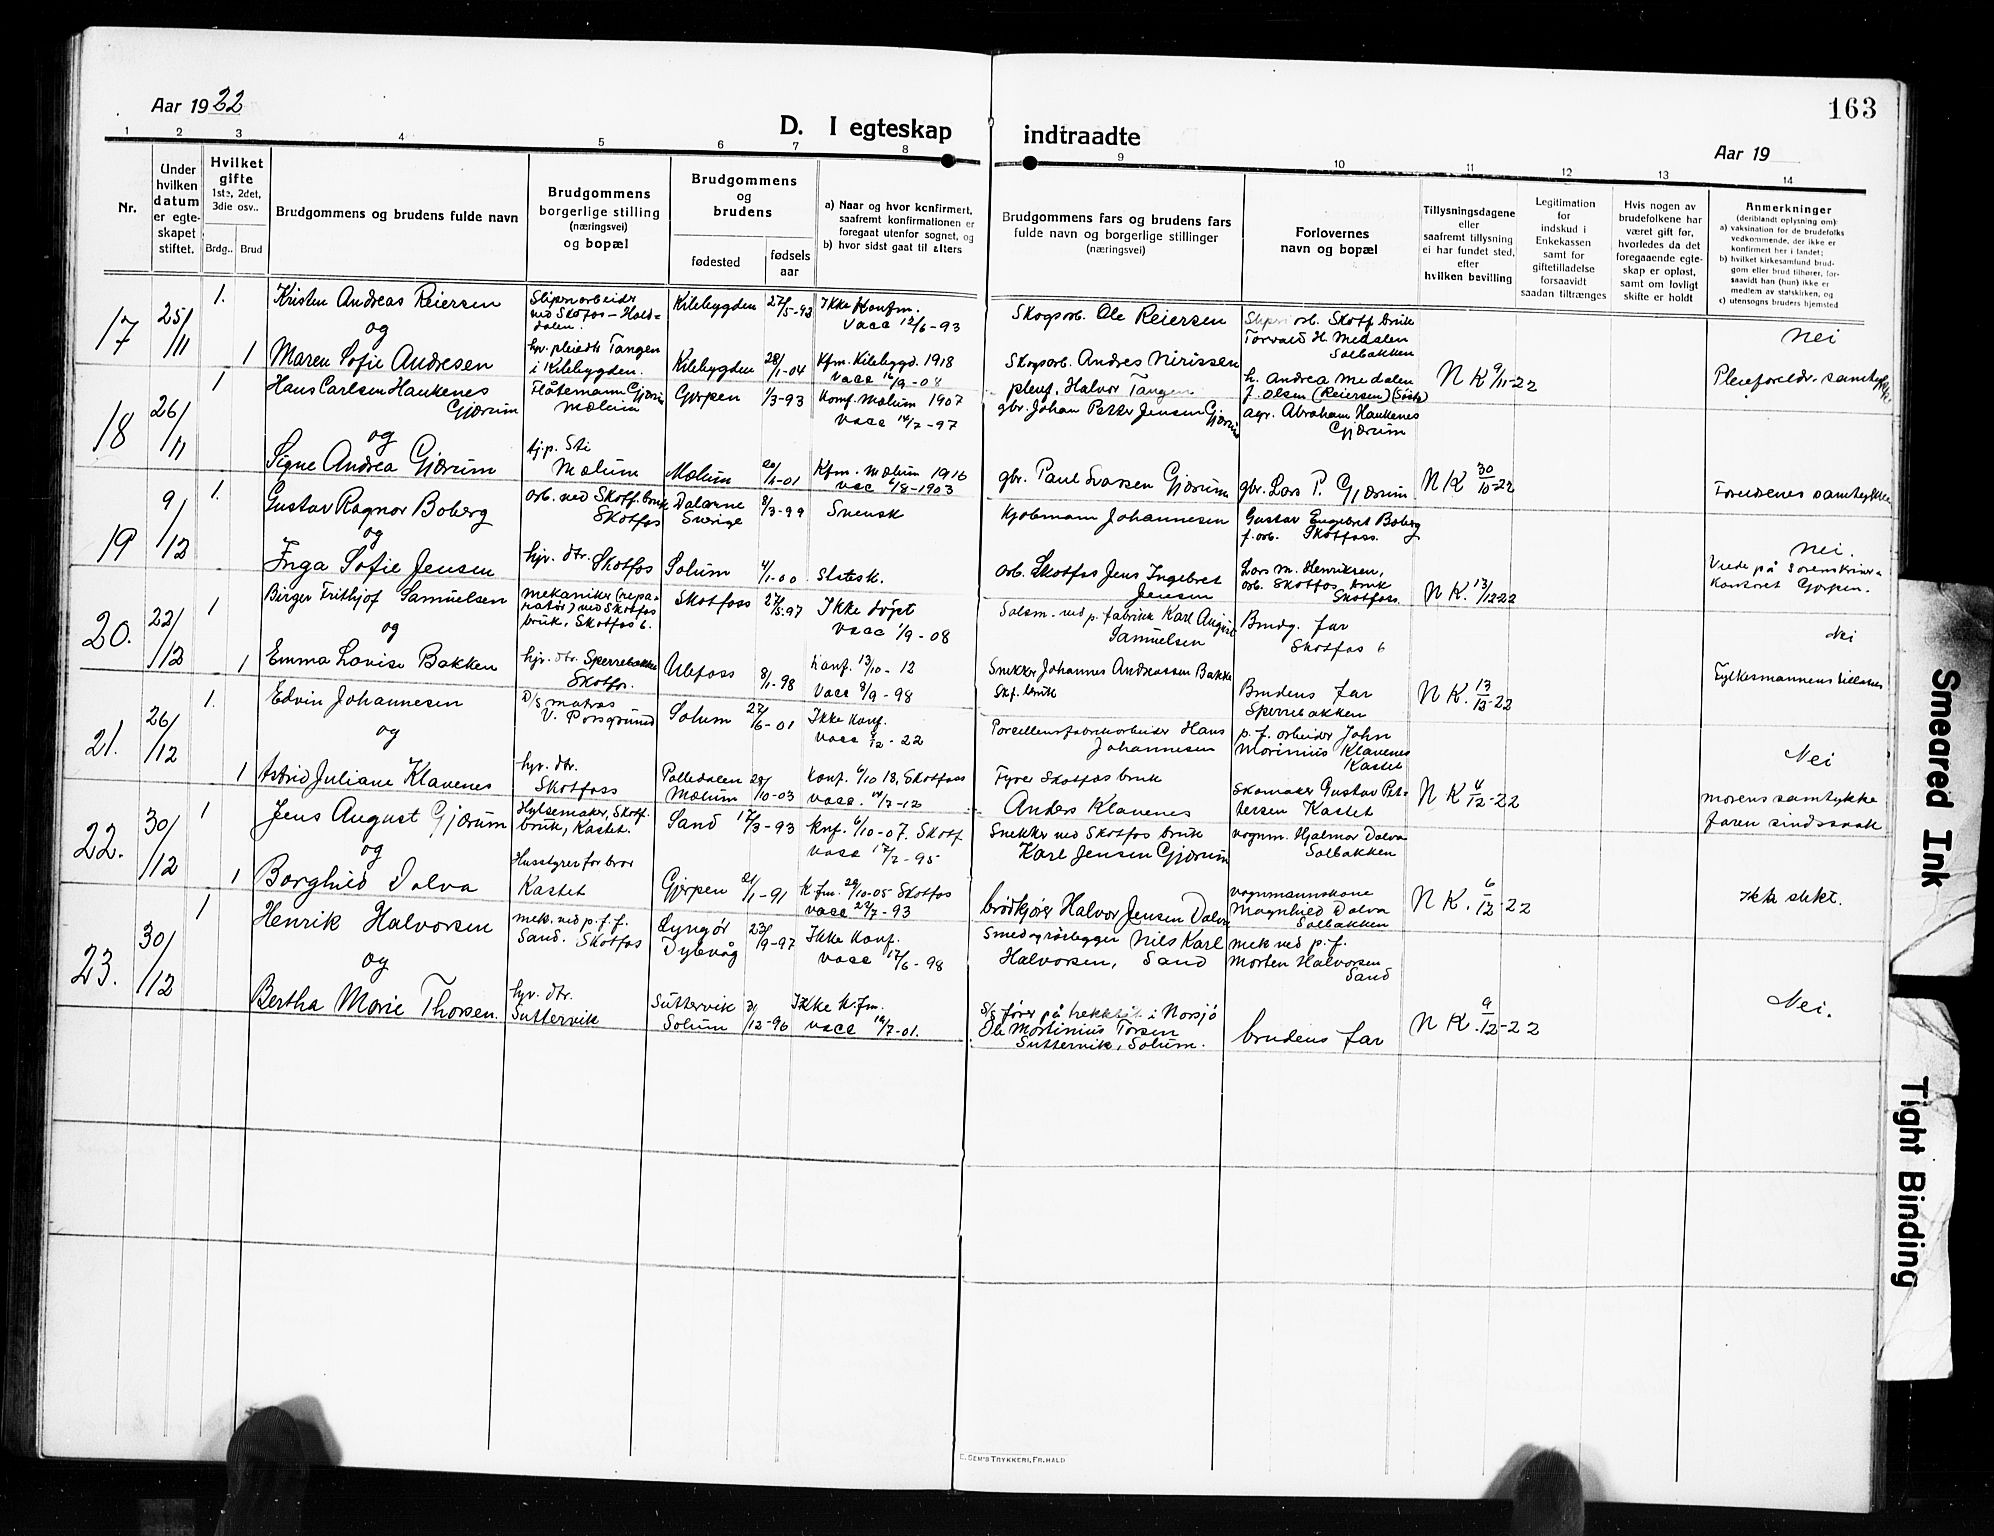 Aar 1922
D. I egteskap indtraadte
Aar 19
163
1 2 3 4 5 6 7 8 9 10 11 12 13 14
Nr.
Under hvilken datum er egte-skapet stiftet.
Hvilket gifte
1ste, 2det, 3die osv..
Brdg..
Brud
Brudgommens og brudens fulde navn
Brudgommens borgerlige stilling (næringsvei) og bopæl
Brudgommens og brudens
fødested
fødsels aar
a) Naar og hvor konfirmert, saafremt konfirmationen er foregaat utenfor sognet, og
b) hvor sidst gaat til alters
Brudgommens fars og brudens fars fulde navn og borgerlige stillinger (næringsvei)
Forlovernes navn og bopæl
Tillysningsdagene eller saafremt tillysning ei har fundet sted, efter hvilken bevilling
Legitimation for indskud i Enkekassen samt for giftetilladelse forsaavidt saadan tiltrænges
Hvis nogen av brudefolkene har været gift før, hvorledes da det foregaaende egte-skap er opløst, samt om lovligt skifte er holdt
Anmerkninger
(deriblandt oplysning om):
a) vaksination for de brudefolks vedkommende, der ikke er konfirmert her i landet;
b) hvilket kirkesamfund brud-gom eller brud tilhører, for-saavidt han (hun) ikke er medlem av statskirken, og
c) utensogns bruders hjemsted
17 25/11 1. Kristen Andreas Reiersen
Sliperiarbeider ved Skotfos - Hold-dalen.
Kilebygden 27/5-93
Ikke konfm. Vacc 12/6-93
Skogsarb. Ole Reiersen
Sliperi arb. Skotf. bruk Torvald H. Medalen Solbakken
Nei
og
1 Maren Sofie Andresen
hv. pleiedtr Tangen i Kilebygden.
Kilebygden 28/1-04
Kfm. Kilebygd. 1918 Vacc 16/9-08
Skogsarb. Andres Nirissen pleief. Halvor Tangen
h. Andrea Medalen f. Olsen (Reiersen) (Søster)
N K 9/11-22
Pleieforeldr. samtykke
18 26/11 1 Hans Carlsen Haukenes Gjærum
Flåtemann Gjærum Mælum
Gjerpen 1/3-93
Konf. Mælum 1907 Vacc 14/7-97
gbr. Johan Petter Jensen Gjærum
agr. Abraham Haukenes Gjærum
og
Signe Andrea Gjærum
tj.p. Sti Mælum
Mælum 20/1-01
Kfm. Mælum 1916 vac 6/8-1903
gbr. Paul Ivarsen Gjærum
gbr. Lars P. Gjærum
N K 30/10-22
Foreldrenes samtykke
19 9/12 1. Gustav Ragnar Boberg
arb. ved Skotf. bruk Skotfos
Dalarne Sverige 8/3-99
Svensk
Kjøbmann Johannesen
Gustav Engebret Boberg f. arb. Skotfoss.
Nei.
og
Inga Sofie Jensen
hjv. dtr. Skotfos
Solum 4/1-00
Statsk.
arb. Skotfos Jens Ingebret Jensen
Lars M. Henriksen, arb. Skotfos bruk Skotfoss.
N K. 13/12-22
Viede på Sorenskriver-kontoret Gjerpen.
20. 22/12 1 Birger Frithjof Samuelsen
mekaniker (repa-ratør) ved Skotfos bruk, Skotfos b.
Skotfoss 27/5-97
Ikke døpt Vacc 1/9-08
Salsm. ved p. fabrikk Karl August Samuelsen
Brudg. far Skotfos b
Nei
og
1 Emma Lovise Bakken
hjv. dtr. Sperrebakken Skotfos.
Ulefoss 8/1-98
Konf. 13/10-12 Vacc 8/9-98
Snekker Johannes Andreassen Bakken Skf. bruk
Brudens far Sperrebakken
N K. 13/12-22
Fylkesmannens tillatelse
21. 26/12 1. Edvin Johannesen
D/S matros V. Porsgrund
Solum 27/6-01
Ikke konf. Vacc 8/12-22
Porcellensfabrikarbeider Hans Johannesen
p. f. arbeider John Morinius Klavenes Kastet
Nei
og
1 Astrid Juliane Klavenes
hjv. dtr. Skotfoss
Polledalen Mælum 28/10-03
Konf. 6/10 18, Skotfoss vacc. 14/7-12
Fyrer Skotfos bruk Anders Klavenes
Skomaker Gustav Pet-tersen Kastet
N K 4/12-22
morens samtykke faren sindssvak
22. 30/12 1 Jens August Gjærum
Hylsemaker, Skotf. bruk, Kastet.
Sand 17/3-93
knf. 6/10-07. Skotf Vacc 17/7-95
Snekker ved Skotfos bruk Karl Jensen Gjærum
vognm. Hjalmar Dalva Solbakken
og
1 Borghild Dalva
Husstyrer for bror Kastet
Gjerpen 21/1-91
K.fm. 29/10-05 Skotfos vacc 22/7-93
brødkjører Halvor Jensen Dalva
vognmannskone Magnhild Dalva Solbakken
N K. 6/12-22
Ikke slekt.
23. 30/12 1 Henrik Halvorsen
mek. ved p.f.f. Sand. Skotfos
Lyngør Dybvåg 23/9-97
Ikke konf. vacc 17/6-98
Smed og rørlegger Nils Karl Halvorsen, Sand
mek ved p.f. Morten Halvorsen Sand
og
Bertha Marie Thorsen.
hjv. dtr. Suttervik
Suttervik Solum 31/12-96
Ikke k.fm. vacc 16/7-01.
S/S fører på trekkbåt i Norsjø Ole Mortinius Torsen Suttervik, Solum.
brudens far
N K. 9/12-22
Nei.
E. SEM'S TRYKKERI, FR.HALD
Smeared Ink
Tight Binding